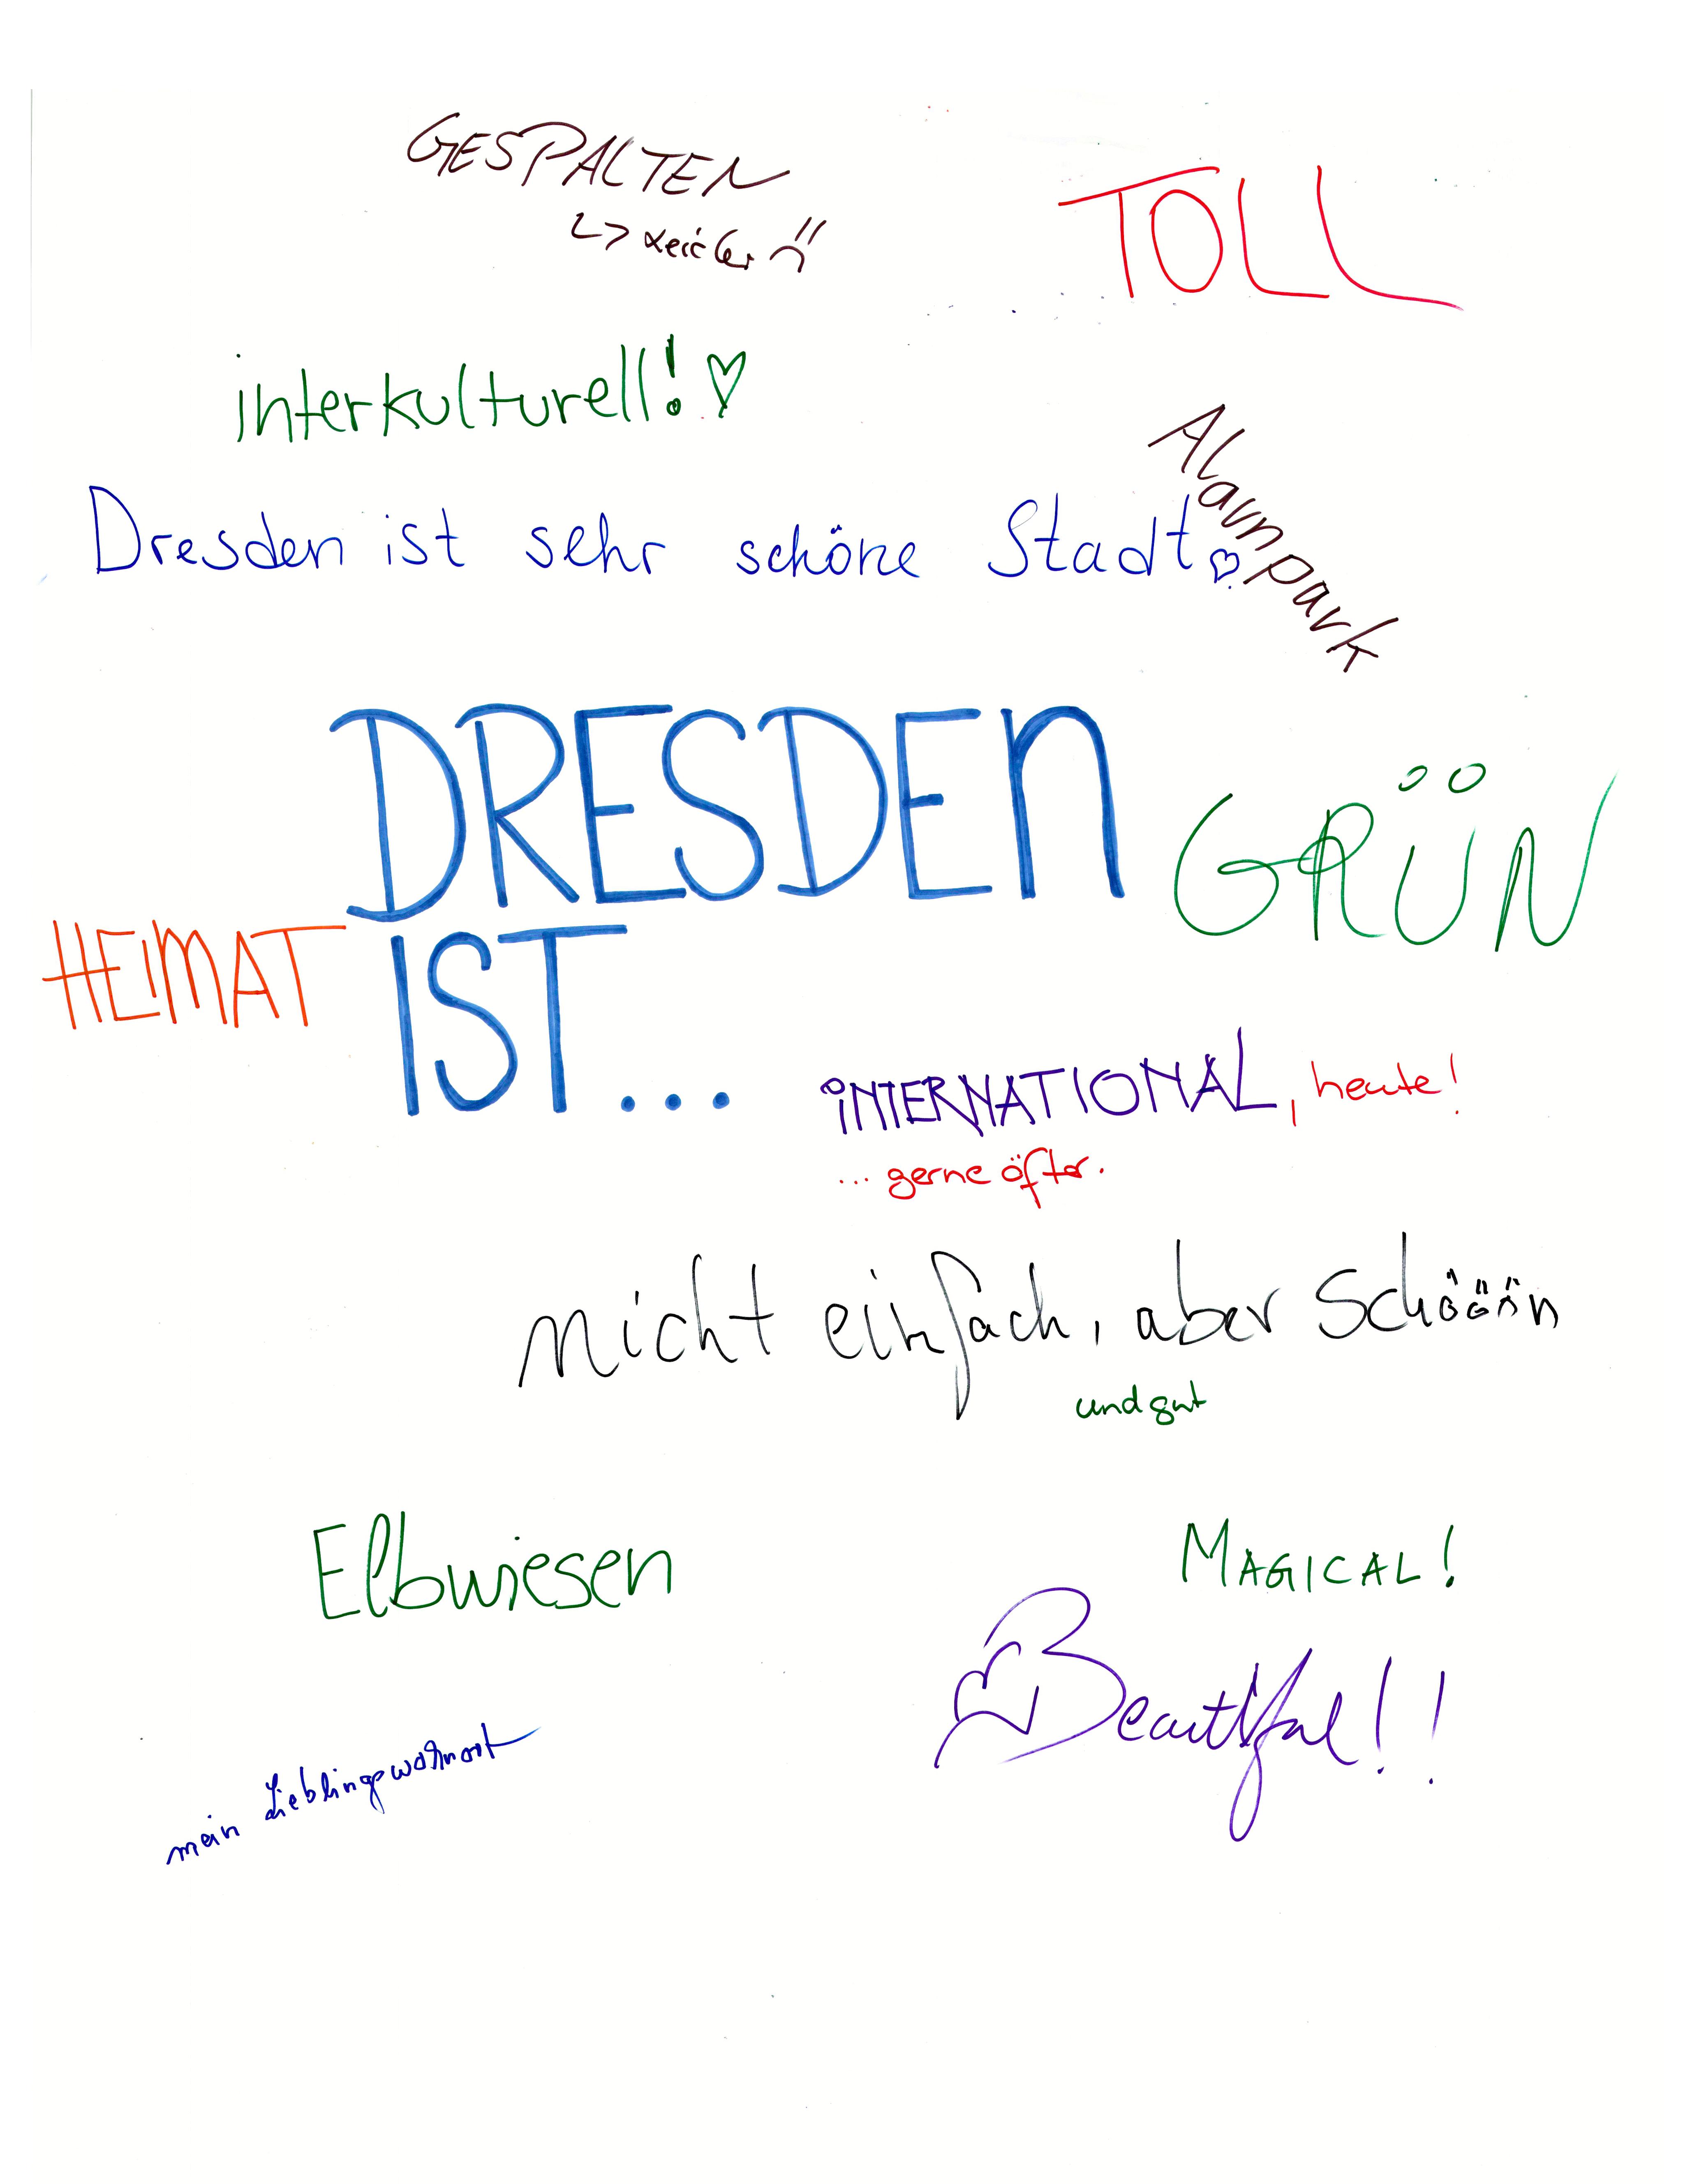 GESPALTEN
↳ leider :(
TOLL
interkulturell! ♡
Alaunpark
Dresden ist sehr schöne Stadt ♡
DRESDEN
IST...
GRÜN
HEIMAT
INTERNATIONAL, heute!
... gerne öfter.
nicht einfach, aber schööön
und gut
Elbwiesen
MAGICAL!
Beautiful!!
mein Lieblingswohnort